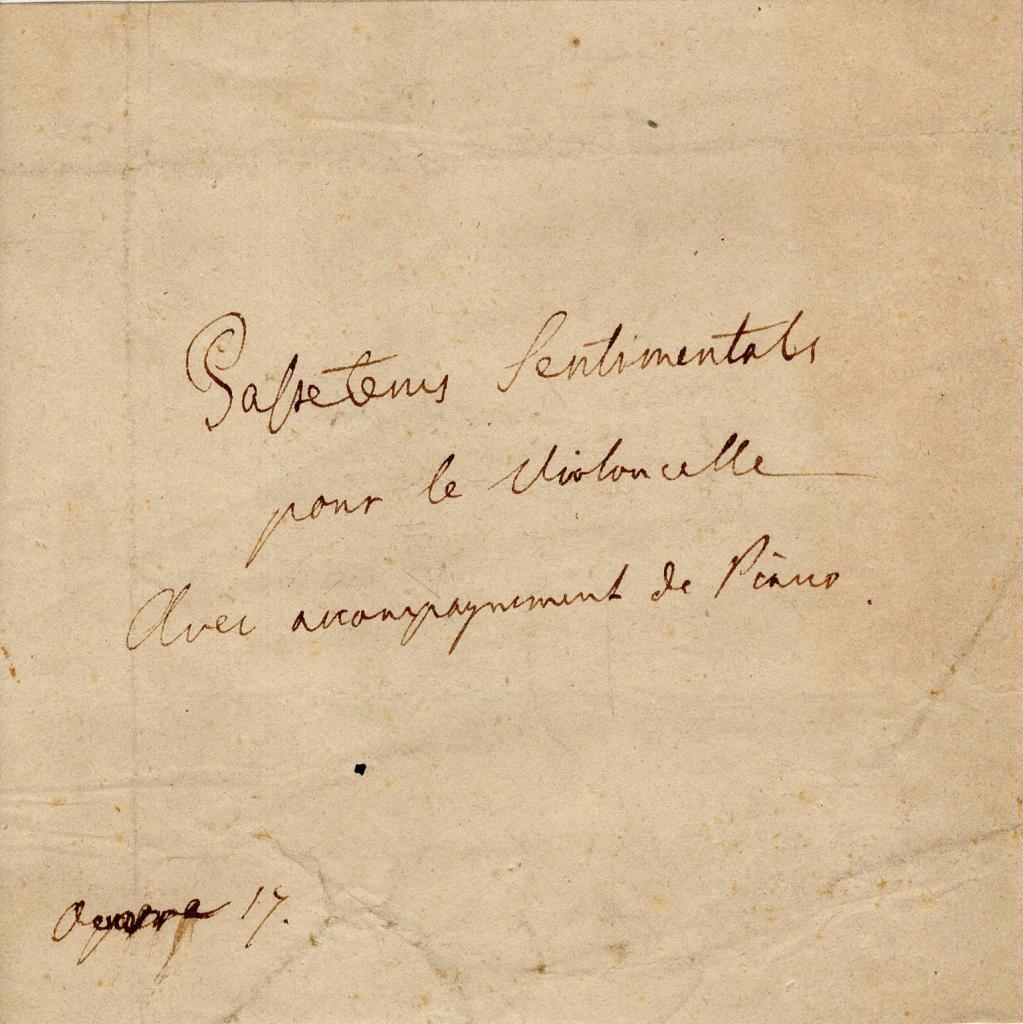 Passetems Sentimentals
pour le Violoncelle
Avec accompagnement de Piano.
Oeuvre 17.